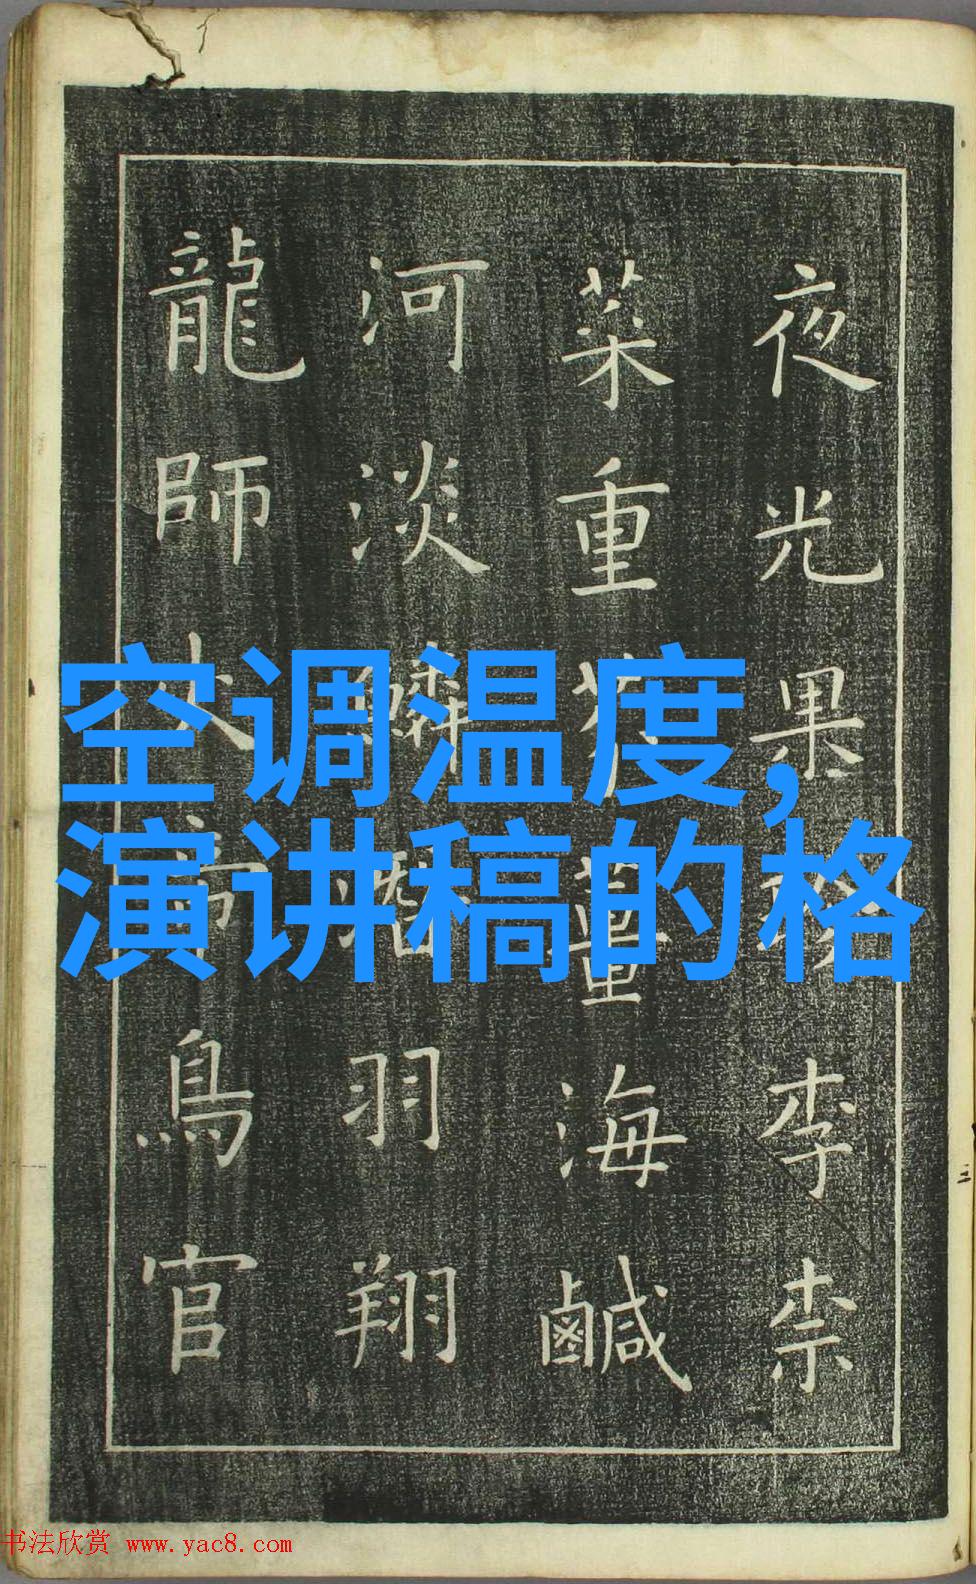 夜光果珍李柰
菜重芥薑海鹹
河淡鱗潛羽翔
龍師火帝鳥官
空调温度,
演讲稿的格
书法欣赏 www.yac8.com